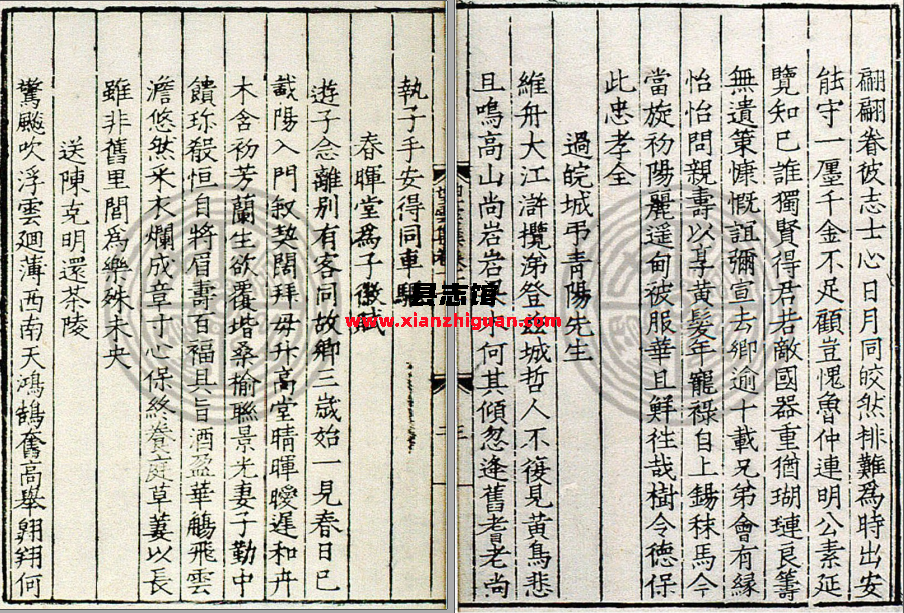 翩翩眷彼志士心日月同皎然排難為時出安
能守一廛千金不足顧豈愧魯仲連明公素延
覽知已誰獨賢得君若敵國器重猶瑚璉良籌
無遺策慷慨誼彌宣去鄉逾十載兄弟會有緣
怡怡問親壽以享黃髮年寵祿自上錫秣馬今
當旋初陽麗遥甸被服華且鮮徃哉樹令德保
此忠孝全
過皖城弔青陽先生
維舟大江滸攬涕登茲城哲人不復見黃鳥悲
且鳴高山尚岩岩梁木何其傾忽逢舊耆老尚
執子手安得同車
春暉堂為子徽賦
遊子念離別有客同故鄉三歲始一見春日已
載陽入門叙契闊拜母升高堂晴暉曖遲和卉
木含初芳蘭生欲覆堦桑榆聯景光妻子勤中
饋珎殽恒自將眉壽百福具旨酒盈華觴飛雲
澹悠然釆衣爛成章寸心保終養庭草萋以長
雖非舊里閭為樂殊未央
送陳克明還茶陵
驚飈吹浮雲廻薄西南天鴻鵠奮高舉翱翔何
县志馆
www.xianzhiguan.com